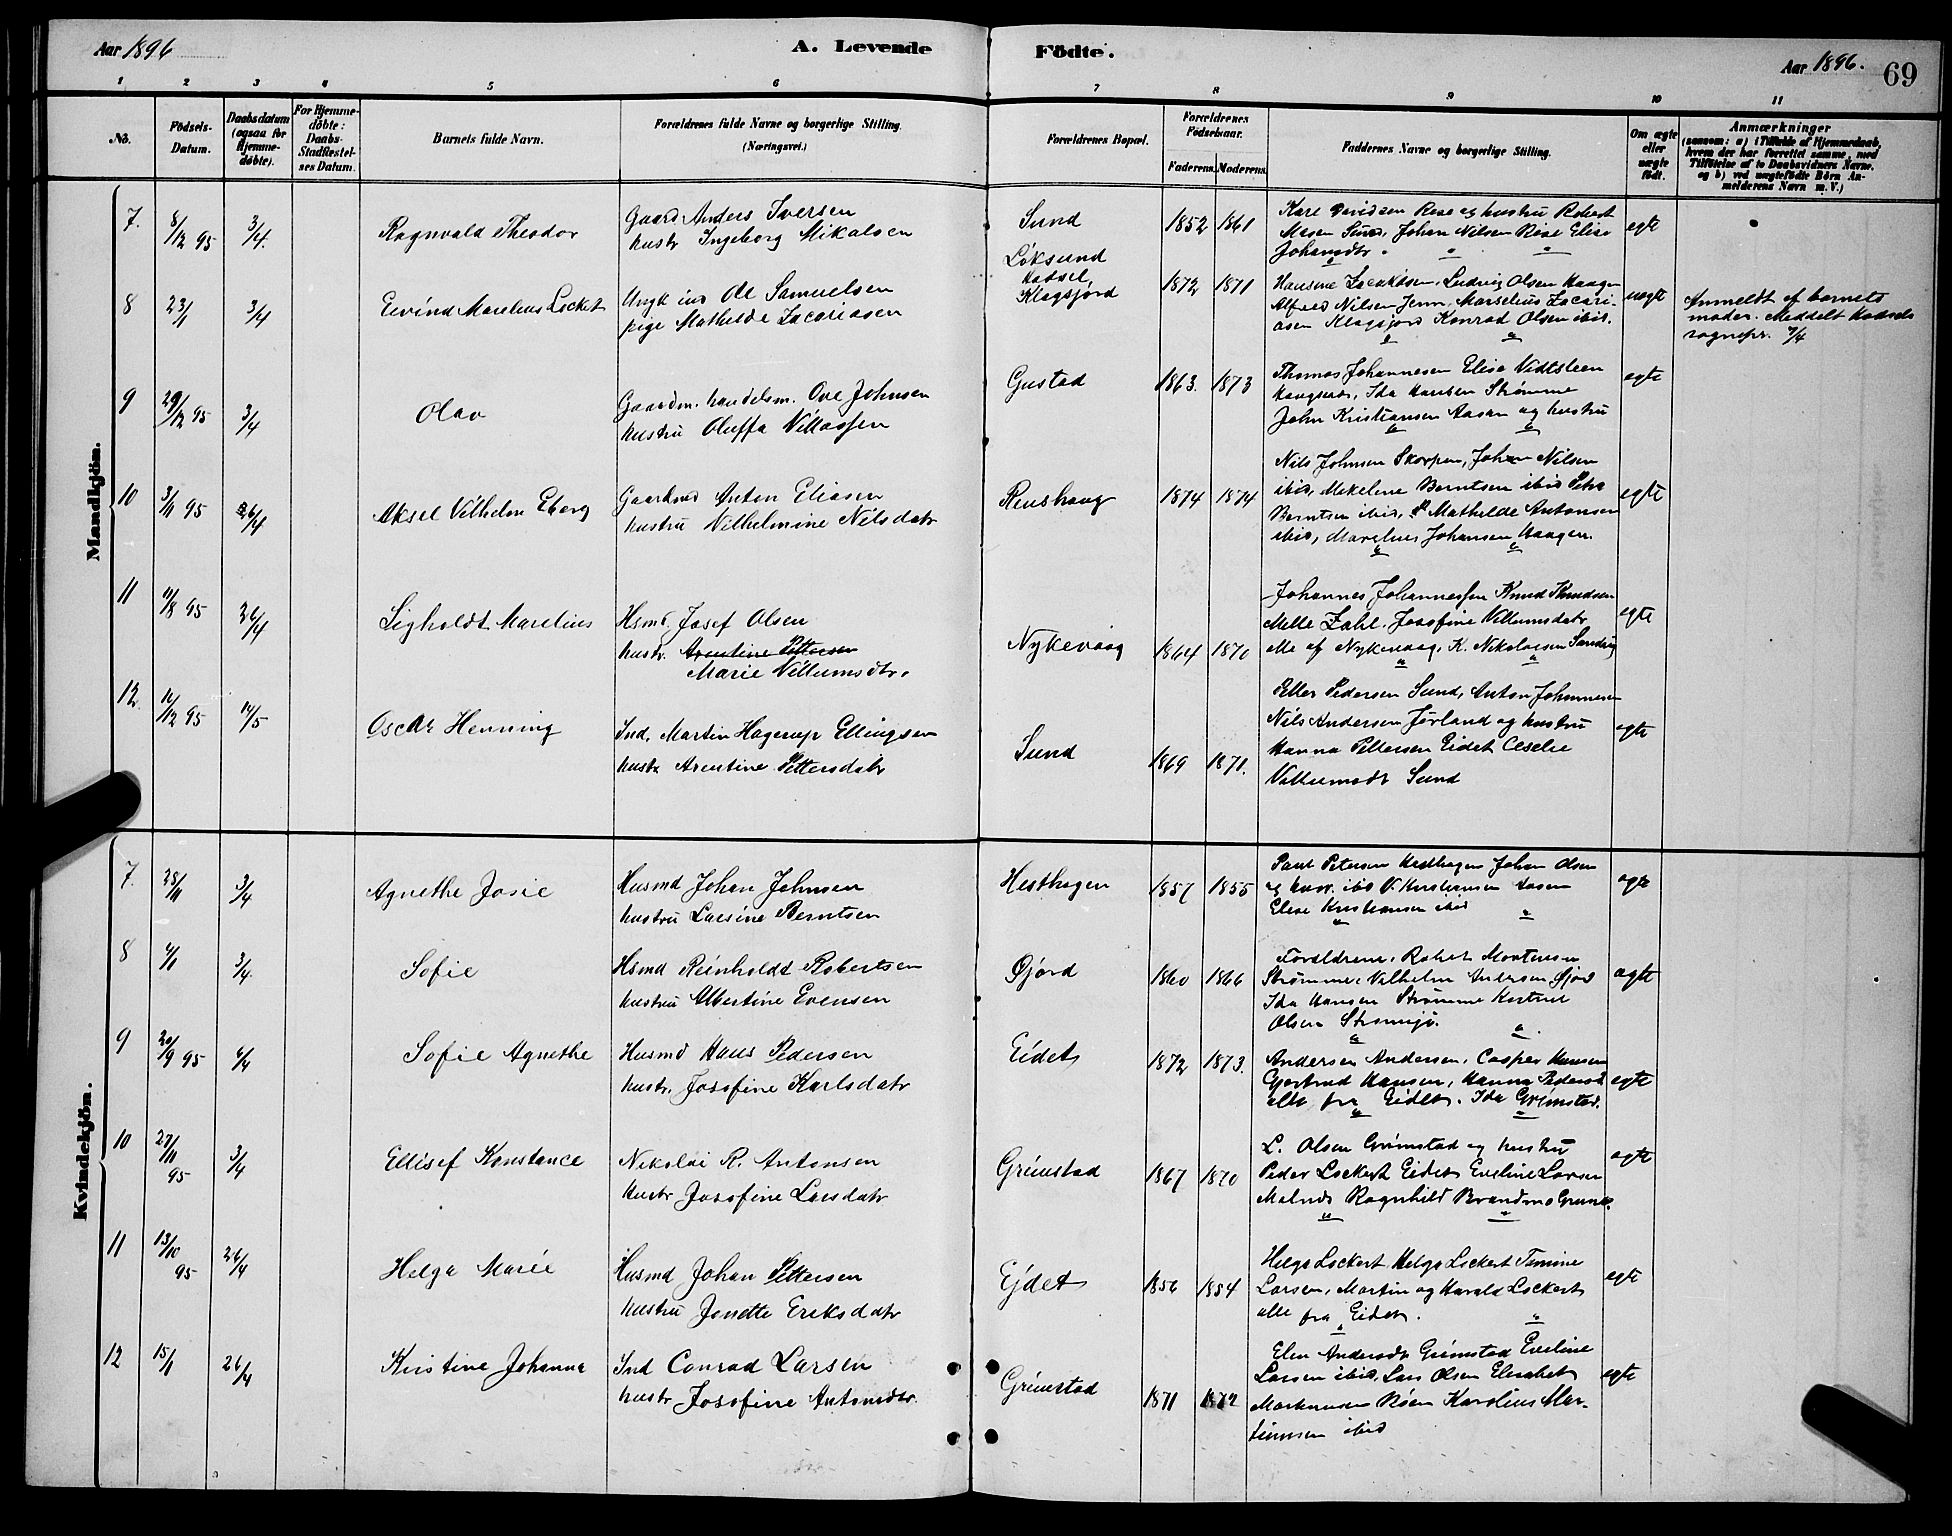 Aar 1896
A. Levende Födte.
Aar 1896.
69
1 2 3 4 5 6 7 8 9 10 11
No.
Födsels-Datum.
Daabsdatum (ogsaa for Hjemme-döbte).
For Hjemme-döbte: Daabs-Stadfæstel-ses Datum.
Barnets fulde Navn.
Forældrenes fulde Navne og borgerlige Stilling.
(Næringsvei.)
Forældrenes Bopæl.
Forældrenes Födselsaar.
Faderens. Moderens.
Faddernes Navne og borgerlige Stilling.
Om ægte eller uægte födt.
Anmærkninger
(saasom: a) i Tilfælde af Hjemmedaab, hvem der har forrettet samme, med Tilföielse af to Daabsvidners Navne. og b) ved uægtefödte Börn Anmelderens Navn m. V.)
Mandkjön.
7. 8/12 95 3/4. Ragnvald Theodor
Gaard Anders Iversen
hustr Ingeborg Mikalsen
Sund 1852 1861
Karl Davidsen Rese og hustru Robert
Sund, Johan Nilsen Rese Elise
Johansdtr.
egte
8 23/1 3/4 Eivind Marelius Lockert
Ungk ind Ole Samuelsen
pige Mathilde Zacariasen
Löksund
Hadsel,
Klagsfjord
1872 1871
Hansine Zacariasen, Ludvig Olsen Haagen
Alfred Nilsen Jenn, Marselius Zacari-
asen Klagsfjord Konrad Olsen ibid.
uegte
Anmeldt af barnets
moder. Meddelt Hadsels
sognepr. 7/4
9 29/12 95 3/4 Olav
Gaardm. handelsm. Ove Johnsen
hustru Oluffa Villassen
Gustad 1863. 1873
Thomas Johannesen Elise Vidtsteen
Ida Hansen Strømme
John Kristiansen Aasan og hustru
egte
10 3/11 95 26/4 Aksel Vilhelm Eberg
Gaardmd Anton Eliasen
hustru Vilhelmine Nilsdatr
Reushaug 1874 1874
Nils Johnsen Skorpen, Johan Nilsen
ibid, Mekeline Berntsen ibid Petra
Berntsen ibid, Mathilde Antonsen
ibid, Marelius Johansen Haagen.
egte
11 11/8 95 26/4 Sigholdt Marelius
Hsmd. Josef Olsen
hustr. Arentine Pettersen
Marie Villumsdtr.
Nykevaag 1864 1870
Johannes Johannessen Knud Knudsen
Melle Zahl, Josefine Villumsdatr
alle af Nykevaag, K. Nikolaisen Sandvig
egte
12. 11/12 95 14/5 Oscar Henning
Ind. Martin Hagerup Ellingsen
hustr Arentine Pettersdatr
Sund 1869 1871.
Peter Pedersen Sund, Anton Johannesen
Nils Andersen Jørland og hustru
Hanna Pettersen Eidet Ceselie
Villumsdtr Sund
egte
Kvindekjön.
7. 28/11 3/4 Agnethe Josie
Husmd Johan Johnsen
hustru Larsine Berntsen
Hesthagen 1857 1855
Paul Petersen Hesthagen Johan Olsen
og hustr. ibid V. Kristiansen Aasen
Elise Kristiansen ibid
egte
8 4/1 3/4. Sofie
Hsmd Reinholdt Robertsen
hustru Albertine Evensen
Øjord 1860 1866
Forældrene, Robert Mortensen
Strømme, Vilhelm Andersen Øjord
Ida Hansen Strømme
Olsen
ægte
9 20/9 95 6/4 Sofie Agnethe
Husmd Hans Pedersen
hustr. Josefine Karlsdatr
Eidet 1872 1873.
Andersen Andersen, Casper Hansen
Gjertrud Hansen, Hanna Pedersd.
alle fra Eidet. Ida Grimstad.
egte
10 27/11 95 3/4 Ellisef Konstance
Nikolai R. Antonsen
hustr Josefine Larsdatr
Grimstad 1867 1870
L. Olsen Grimstad og hustru
Peder Lockert Eidet Eveline Larsen
Malnes Ragnhild Brandmo Grimst.
egte
11 13/10 95 26/4 Helga Marie
Husmd Johan Pettersen
hustru Jonette Eriksdatr
Ejdet 1856 1854
Helga Lockert Helga Lockert Tomine
Larsen, Martin og Harald Lockert
alle fra Eidet.
egte
12 15/1 26/4 Kristine Johanna
Ind Conrad Larsen
hustr Josefine Antonsdtr.
Grimstad 1871 1872
Elen Andersdtr Grimstad Eveline
Larsen ibid, Lars Olsen Elisabet
Røen Karolius Mar-
tinusen ibid
egte